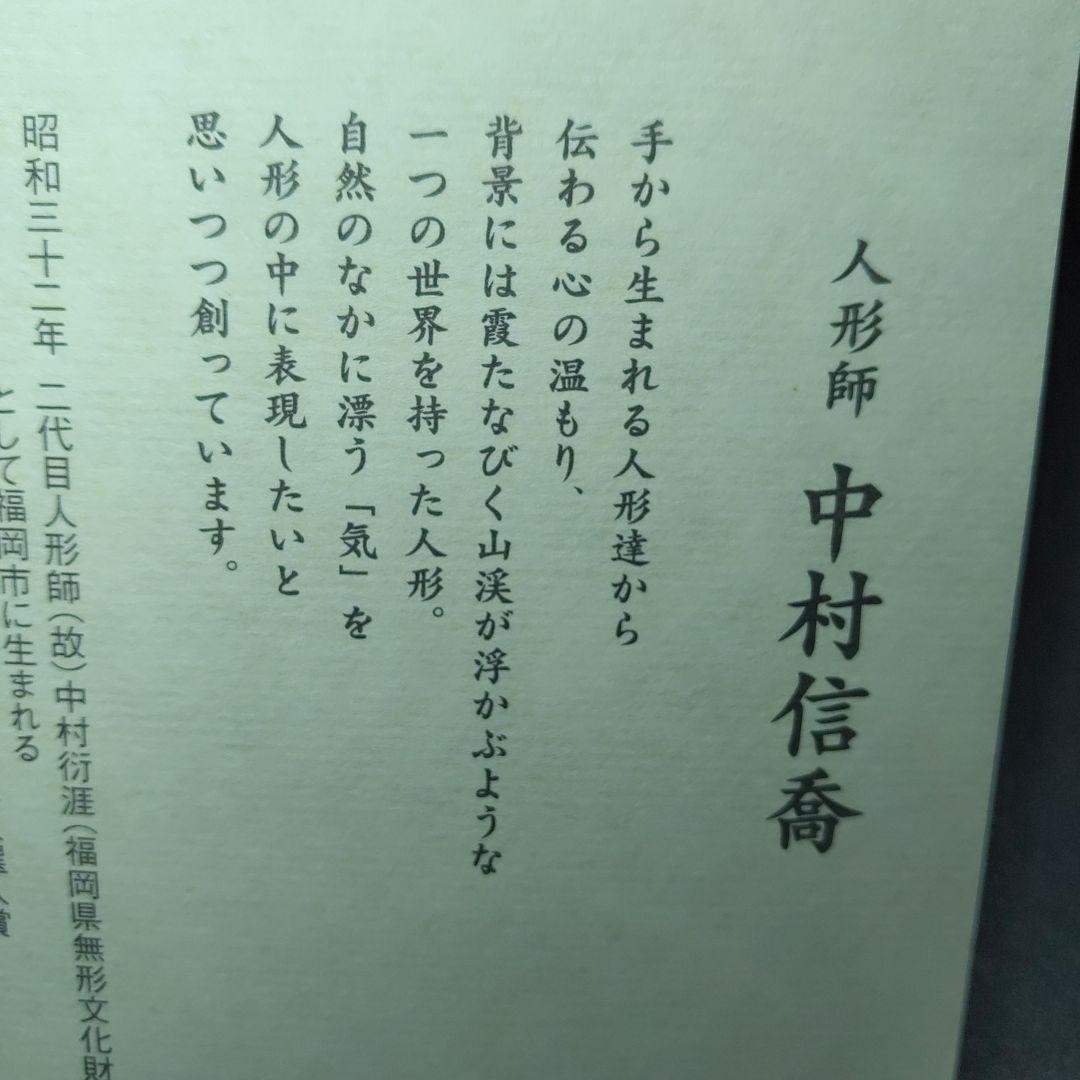 人形師 中村信喬
手から生まれる人形達から
伝わる心の温もり、
背景には霞たなびく山渓が浮かぶような
一つの世界を持った人形。
自然のなかに漂う「気」を
人形の中に表現したいと
思いつつ創っています。
昭和三十二年 二代目人形師(故)中村衍涯(福岡県無形文化財
として福岡市に生まれる